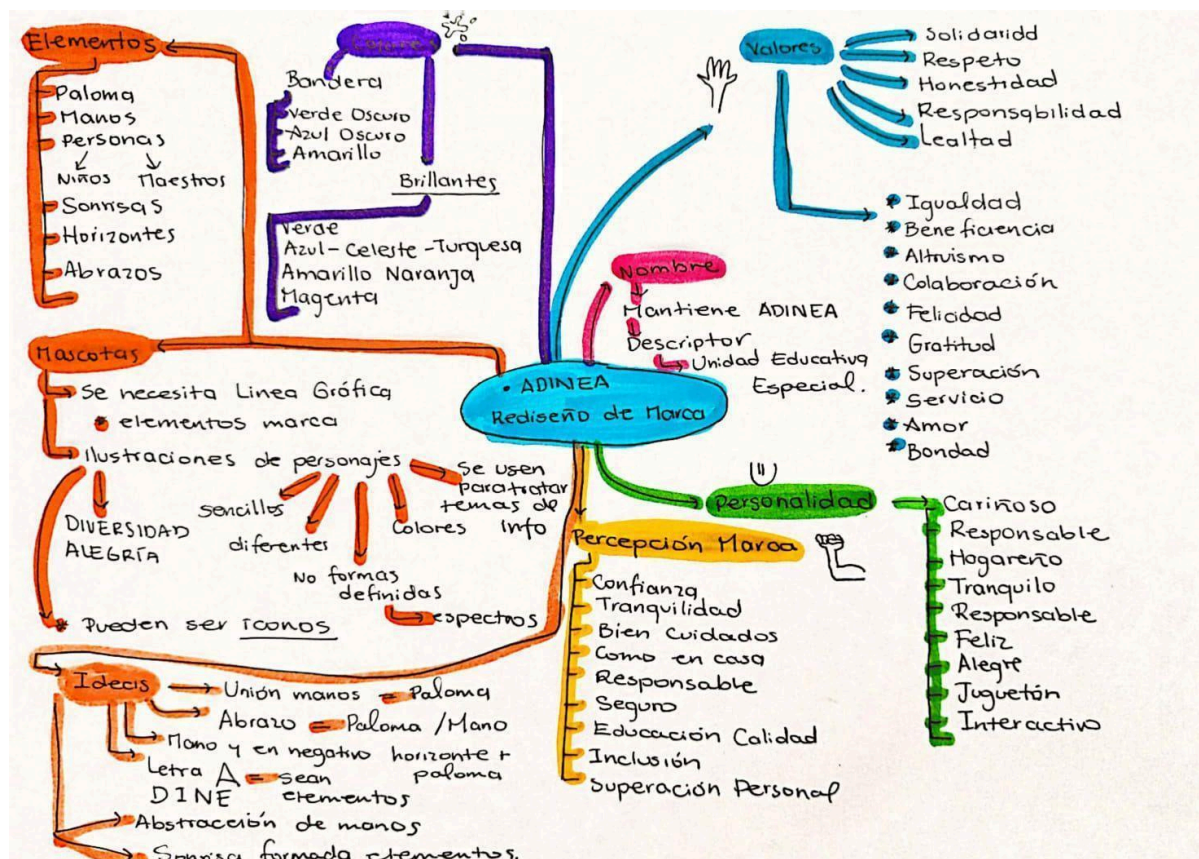 Elementos
Paloma
Manos
Personas
Niños Maestros
Sonrisas
Horizontes
Abrazos
Colores
Bandera
Verde Oscuro
Azul Oscuro
Amarillo
Brillantes
Verde
Azul-Celeste-Turquesa
Amarillo Naranja
Magenta
Valores
Solidaridd
Respeto
Honestidad
Responsabilidad
Lealtad
* Igualdad
* Beneficiencia
* Altruismo
* Colaboración
* Felicidad
* Gratitud
* Superación
* Servicio
* Amor
* Bondad
Nombre
Mantiene ADINEA
Descriptor
Unidad Educativa
Especial.
• ADINEA
Rediseño de Marca
Mascotas
Se necesita Linea Gráfica
* elementos marca
Ilustraciones de personajes
DIVERSIDAD
ALEGRÍA
sencillos
diferentes
No formas
definidas
espectros
Colores
Se usen
para tratar
temas de
info
* Pueden ser iconos
Personalidad
Cariñoso
Responsable
Hogareño
Tranquilo
Responsable
Feliz
Alegre
Juguetón
Interactivo
Percepción Marca
Confianza
Tranquilidad
Bien Cuidados
Como en casa
Responsable
Seguro
Educación Calidad
Inclusión
Superación Personal
Ideas
Unión manos = Paloma
Abrazo = Paloma / Mano
Mano y en negativo horizonte +
paloma
Letra A = sean
DINE elementos
Abstracción de manos
Sonrisa formada elementos.